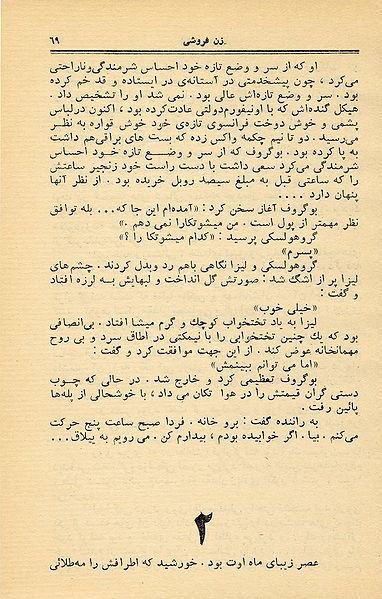 زن فروشی
۶۹
او که از سر و وضع تازه خود احساس شرمندگی‌وناراحتی
می‌کرد ، چون پیشخدمتی در آستانه‌ی در ایستاده و قد خم کرده
بود . سر و وضع تازه‌اش عالی بود . نمی شد او را تشخیص داد .
هیکل گنده‌اش که با اونیفورم‌دولتی عادت‌کرده بود ، اکنون درلباس
پشمی و خوش دوخت فرانسوی تازه‌ی خود خوش قواره به نظر
می‌رسید . دو تا نیم چکمه واکس زده که بست های براقی‌هم داشت
به پا کرده بود . بوگروف که از سر و وضع تازه خود احساس
شرمندگی می‌کرد سعی داشت با دست راست خود زنجیر ساعتش
را که ساعتی قبل به مبلغ سیصد روبل خریده بود . از نظر آنها
پنهان دارد ....
بوگروف آغاز سخن کرد : «آمده‌ام این جا که... بله توافق
نظر مهمتر از پول است . من میشوتکارا نمی دهم .»
گروهولسکی پرسید : «کدام میشوتکا را ؟»
«پسرم»
گروهولسکی و لیزا نگاهی باهم رد وبدل کردند . چشم‌های
لیزا پر از اشگ شد : صورتش گل انداخت و لبهایش به لرزه افتاد
و گفت :
«خیلی خوب»
لیزا به یاد تختخواب کوچك و گرم میشا افتاد . بی‌انصافی
بود که یك چنین تختخوابی را با نیمکتی در اطاق سرد و بی روح
مهمانخانه عوض کند . از این جهت موافقت کرد و گفت :
«اما می توانم ببینمش»
بوگروف تعظیمی کرد و خارج شد . در حالی که چوب
دستی گران قیمتش را در هوا تکان می داد ، با خوشحالی از پله‌ها
پائین رفت .
به راننده گفت : برو خانه . فردا صبح ساعت پنج حرکت
می‌کنم . بیا . اگر خوابیده بودم ، بیدارم کن . می‌رویم به ییلاق...
۲
عصر زیبای ماه اوت بود . خورشید که اطرافش را مه‌طلائی